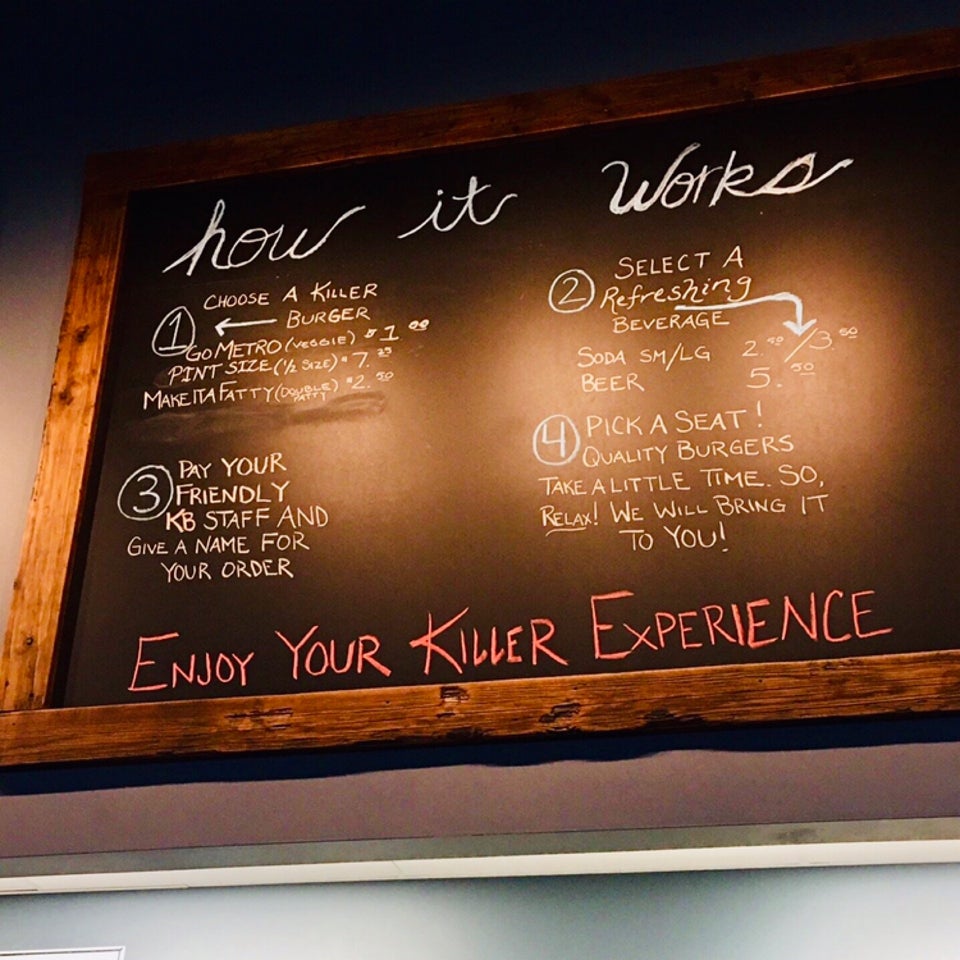 how it works
1 CHOOSE A KILLER
BURGER
GO METRO (VEGGIE) $1.00
PINT SIZE (1/2 SIZE) $7.25
MAKE IT A FATTY (DOUBLE PATTY) $2.50
2 SELECT A
Refreshing
BEVERAGE
SODA SM/LG 2.50/3.50
BEER 5.50
3 PAY YOUR
FRIENDLY
KB STAFF AND
GIVE A NAME FOR
YOUR ORDER
4 PICK A SEAT!
QUALITY BURGERS
TAKE A LITTLE TIME. SO,
RELAX! WE WILL BRING IT
TO YOU!
ENJOY YOUR KILLER EXPERIENCE